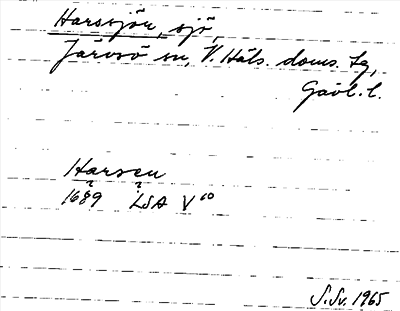 Harssjön, sjö,
Järvsö sn, V. Häls. doms. tg,
Gävl. l.
Harsen
1689 LSA V¹⁰
S.Sv. 1965